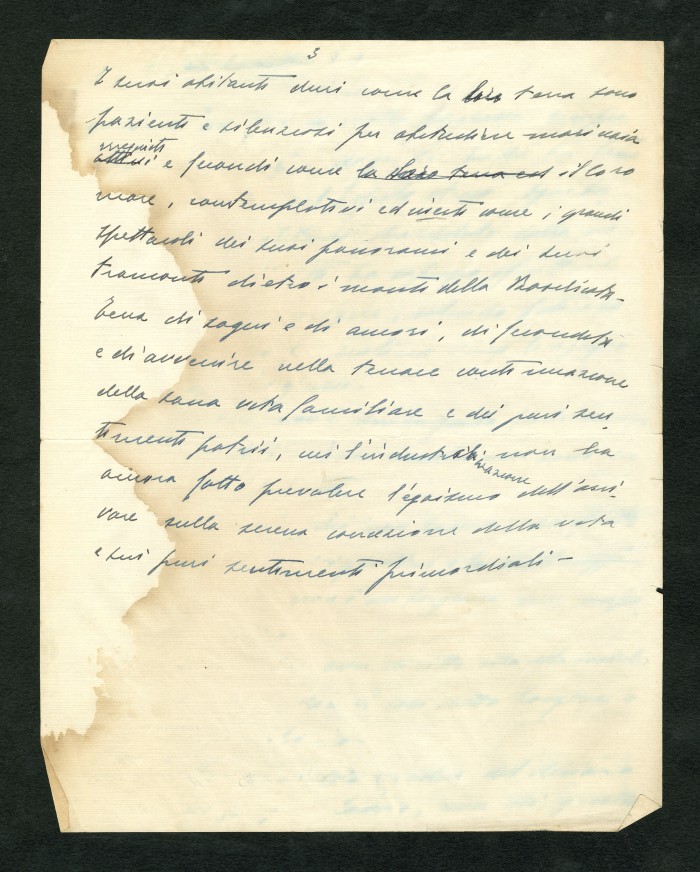 3
I suoi abitanti duri come la loro terra sono
pazienti e silenziosi per abitudine
inquieti
attivi e fecondi come la loro terra ed il loro
mare, contemplativi ed come i grandi
spettacoli dei suoi panorami e dei suoi
tramonti dietro i monti della Basilicata -
Terra di sogni e di amori, di fecondità
e di avvenire nella tenace continuazione
della sana vita familiare e dei puri sen
timenti patrii, cui l'industrializzazione non ha
ancora fatto prevalere l'egoismo dell'arri-
vare sulla serena concezione della vita
e sui puri sentimenti primordiali -